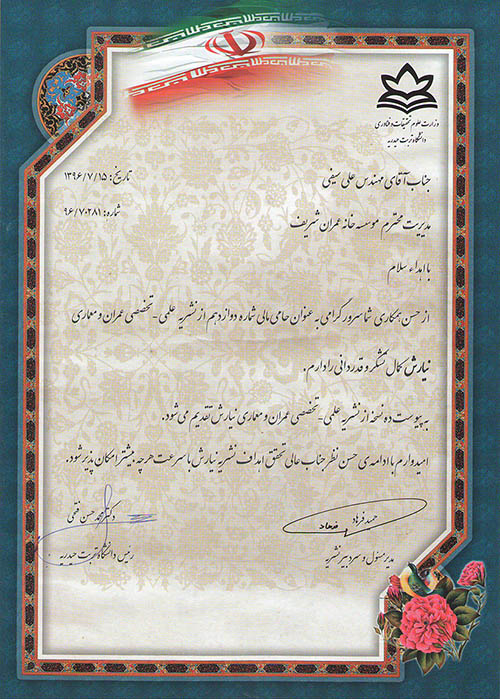 وزارت علوم تحقیقات و فناوری
دانشگاه تربت حیدریه
جناب آقای مهندس علی سیفی
تاریخ: ۱۳۹۶/۷/۱۵
مدیریت محترم موسسه خانه عمران شریف
شماره: ۹۶/۷۰۲۸۱
با اهداء سلام
از حسن همکاری شما سرور گرامی به عنوان حامی مالی شماره دوازدهم از نشریه علمی-تخصصی عمران و معماری
نیارش کمال تشکر و قدردانی را دارم.
به پیوست ده نسخه از نشریه علمی-تخصصی عمران و معماری نیارش تقدیم می شود.
امیدوارم با ادامه ی حسن نظر جناب عالی تحقق اهداف نشریه نیارش با سرعت هرچه بیشتر امکان پذیر شود.
حمید فرهاد
دکتر محمد حسن فقهی
مدیر مسئول و سردبیر نشریه
رئیس دانشگاه تربت حیدریه